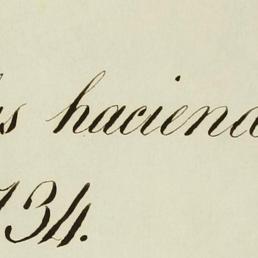 s haciend
734.